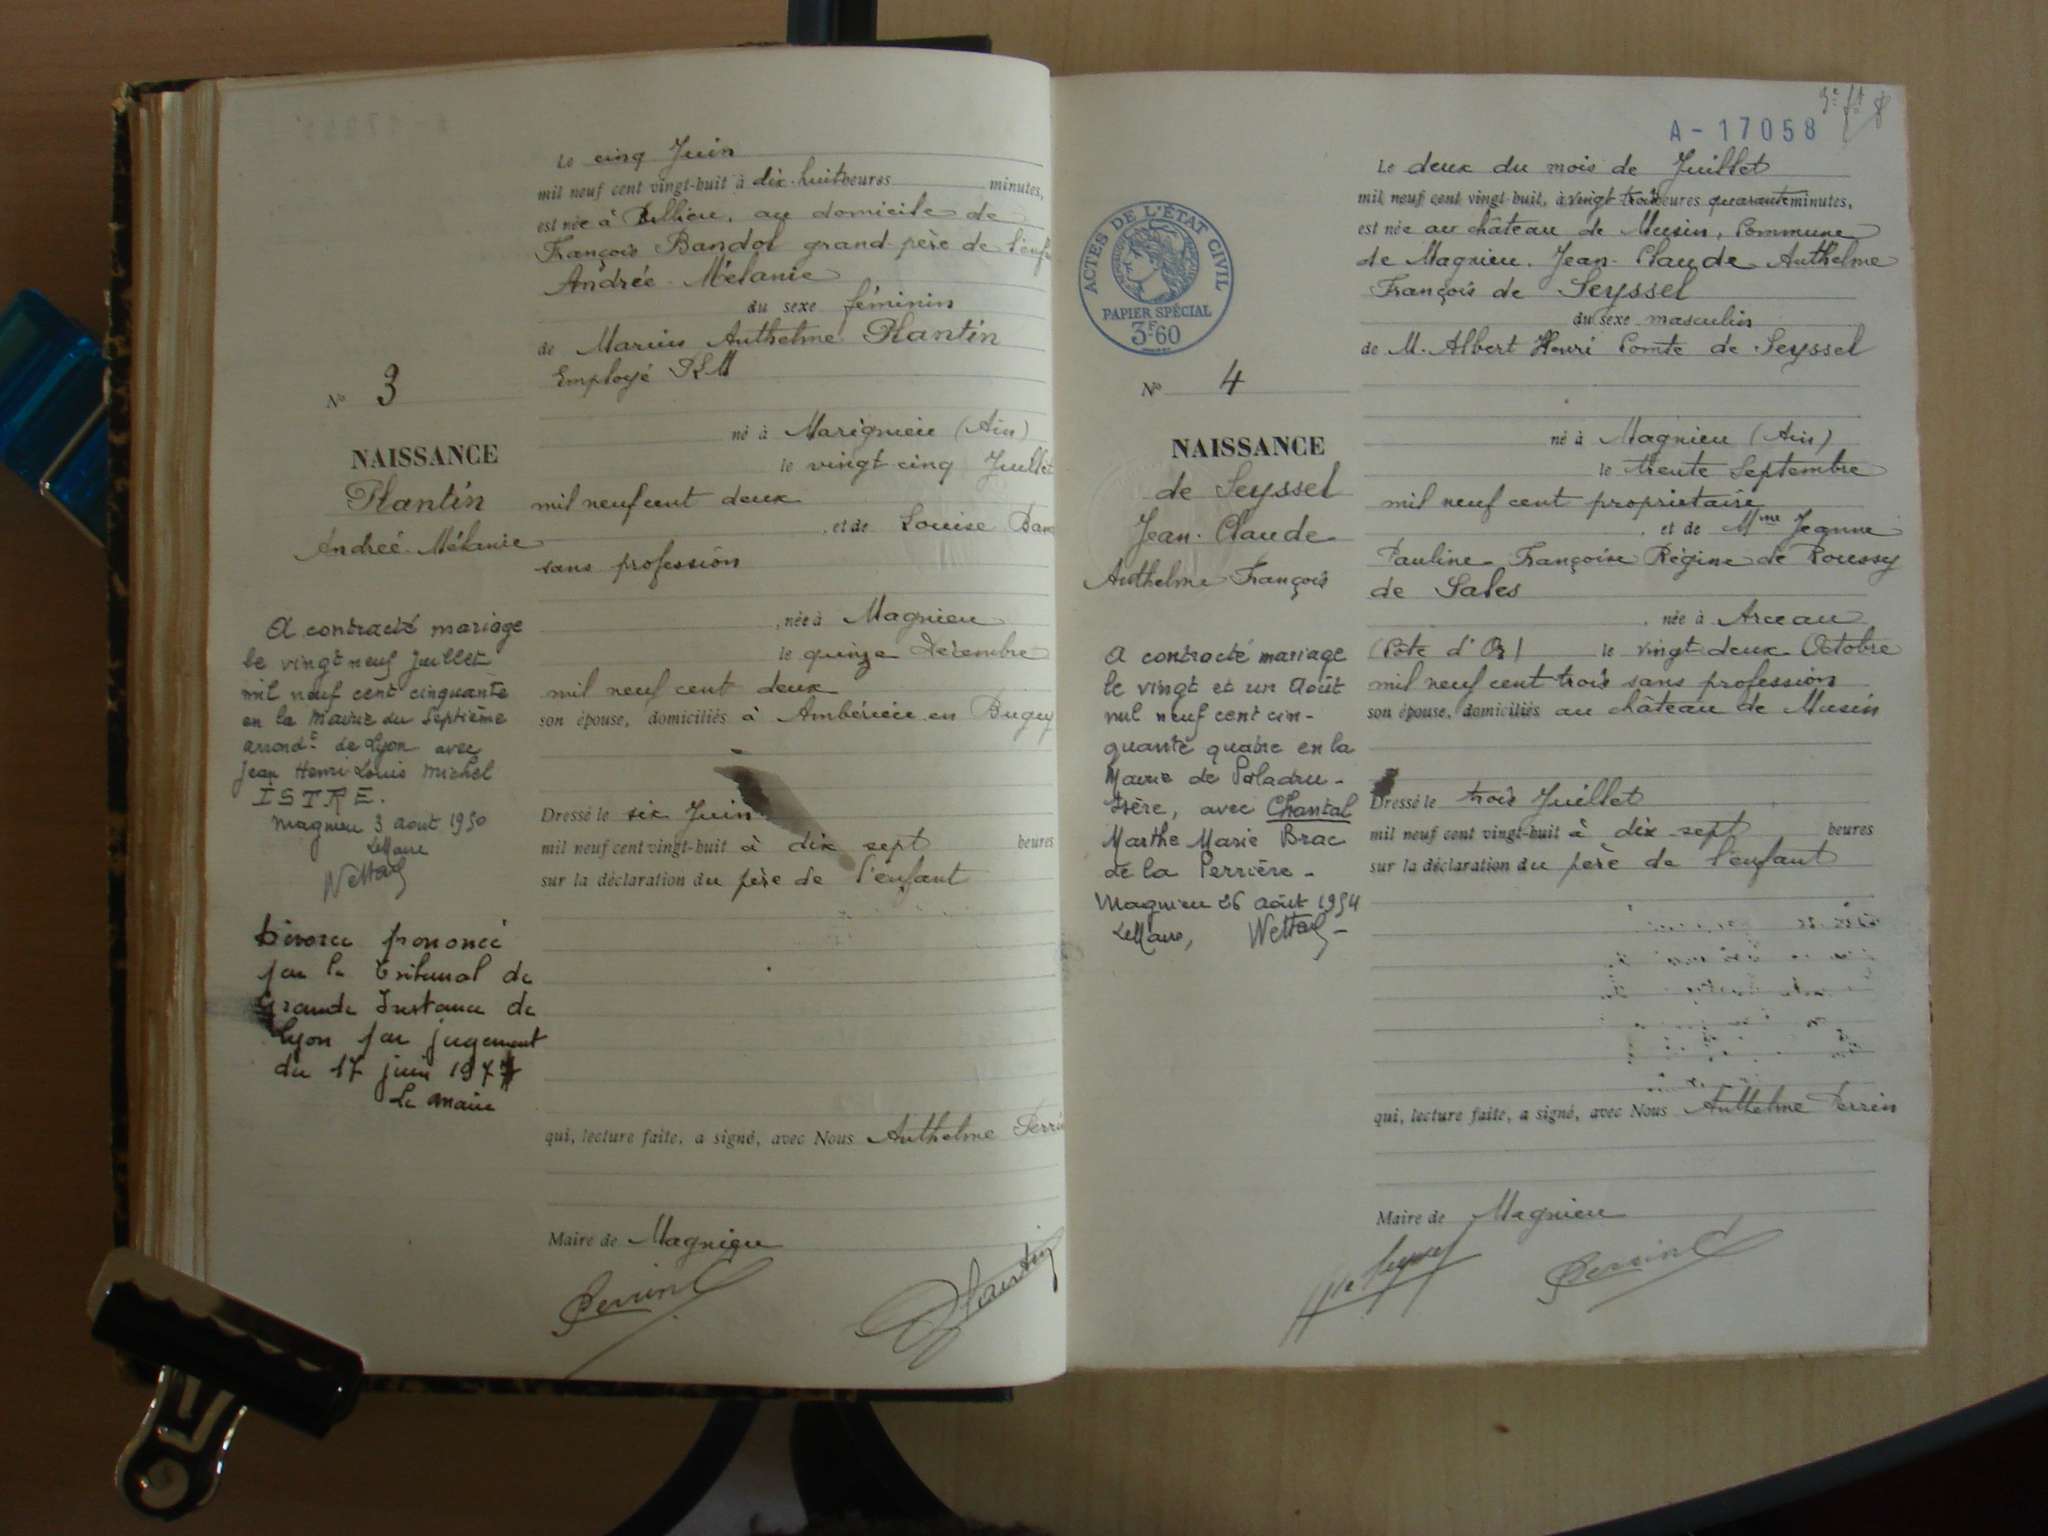 Le cinq Juin
mil neuf cent vingt-huit à dix-huit heures minutes,
est née à Billieu, au domicile de
François Bandol grand-père de l'enf
Andrée Mélanie
du sexe féminin
de Marius Anthelme Plantin
Employé PLM
N° 3
né à Marignieu (Ain)
le vingt cinq Juillet
NAISSANCE
Plantin
Andreé-Mélanie
mil neuf cent deux
, et de Louise Ban
sans profession
, née à Magnieu
le quinze Décembre
mil neuf cent deux
son épouse, domiciliés à Ambérieu en Bugey
A contracté mariage
le vingt neuf juillet
mil neuf cent cinquante
en la Mairie du Septième
arrondt de Lyon avec
Jean Henri Louis Michel
ISTRE.
Magnieu 3 août 1950
Le Maire
Dressé le six Juin
mil neuf cent vingt-huit à dix sept heures
sur la déclaration du père de l'enfant
Divorce prononcé
par le Tribunal de
Grande Instance de
Lyon par jugement
du 17 juin 1977
Le Maire
qui, lecture faite, a signé, avec Nous Anthelme Perrin
Maire de Magnieu
Perrin
Plantin
A-17058
Le deux du mois de Juillet
mil neuf cent vingt-huit, à vingt trois heures quarante minutes,
est née au château de Musin, Commune
de Magnieu. Jean-Claude Anthelme
François de Seyssel
du sexe masculin
de M. Albert Henri Comte de Seyssel
ACTES DE L'ÉTAT CIVIL
PAPIER SPÉCIAL
3F60
N° 4
né à Magnieu (Ain)
le trente Septembre
NAISSANCE
de Seyssel
Jean-Claude
Anthelme François
mil neuf cent propriétaire
, et de Mme Jeanne
Pauline Françoise Régine de Roussy
de Sales
, née à Arceau
(Côte d'Or) le vingt deux Octobre
mil neuf cent trois sans profession
son épouse, domiciliés au château de Musin
A contracté mariage
le vingt et un Août
mil neuf cent cin-
quante quatre en la
Mairie de Paladru-
Isère, avec Chantal
Marthe Marie Brac
de la Perrière-
Magnieu 26 août 1954
Le Maire,
Dressé le trois Juillet
mil neuf cent vingt-huit à dix sept heures
sur la déclaration du père de l'enfant
qui, lecture faite, a signé, avec Nous Anthelme Perrin
Maire de Magnieu
de Seyssel
Perrin